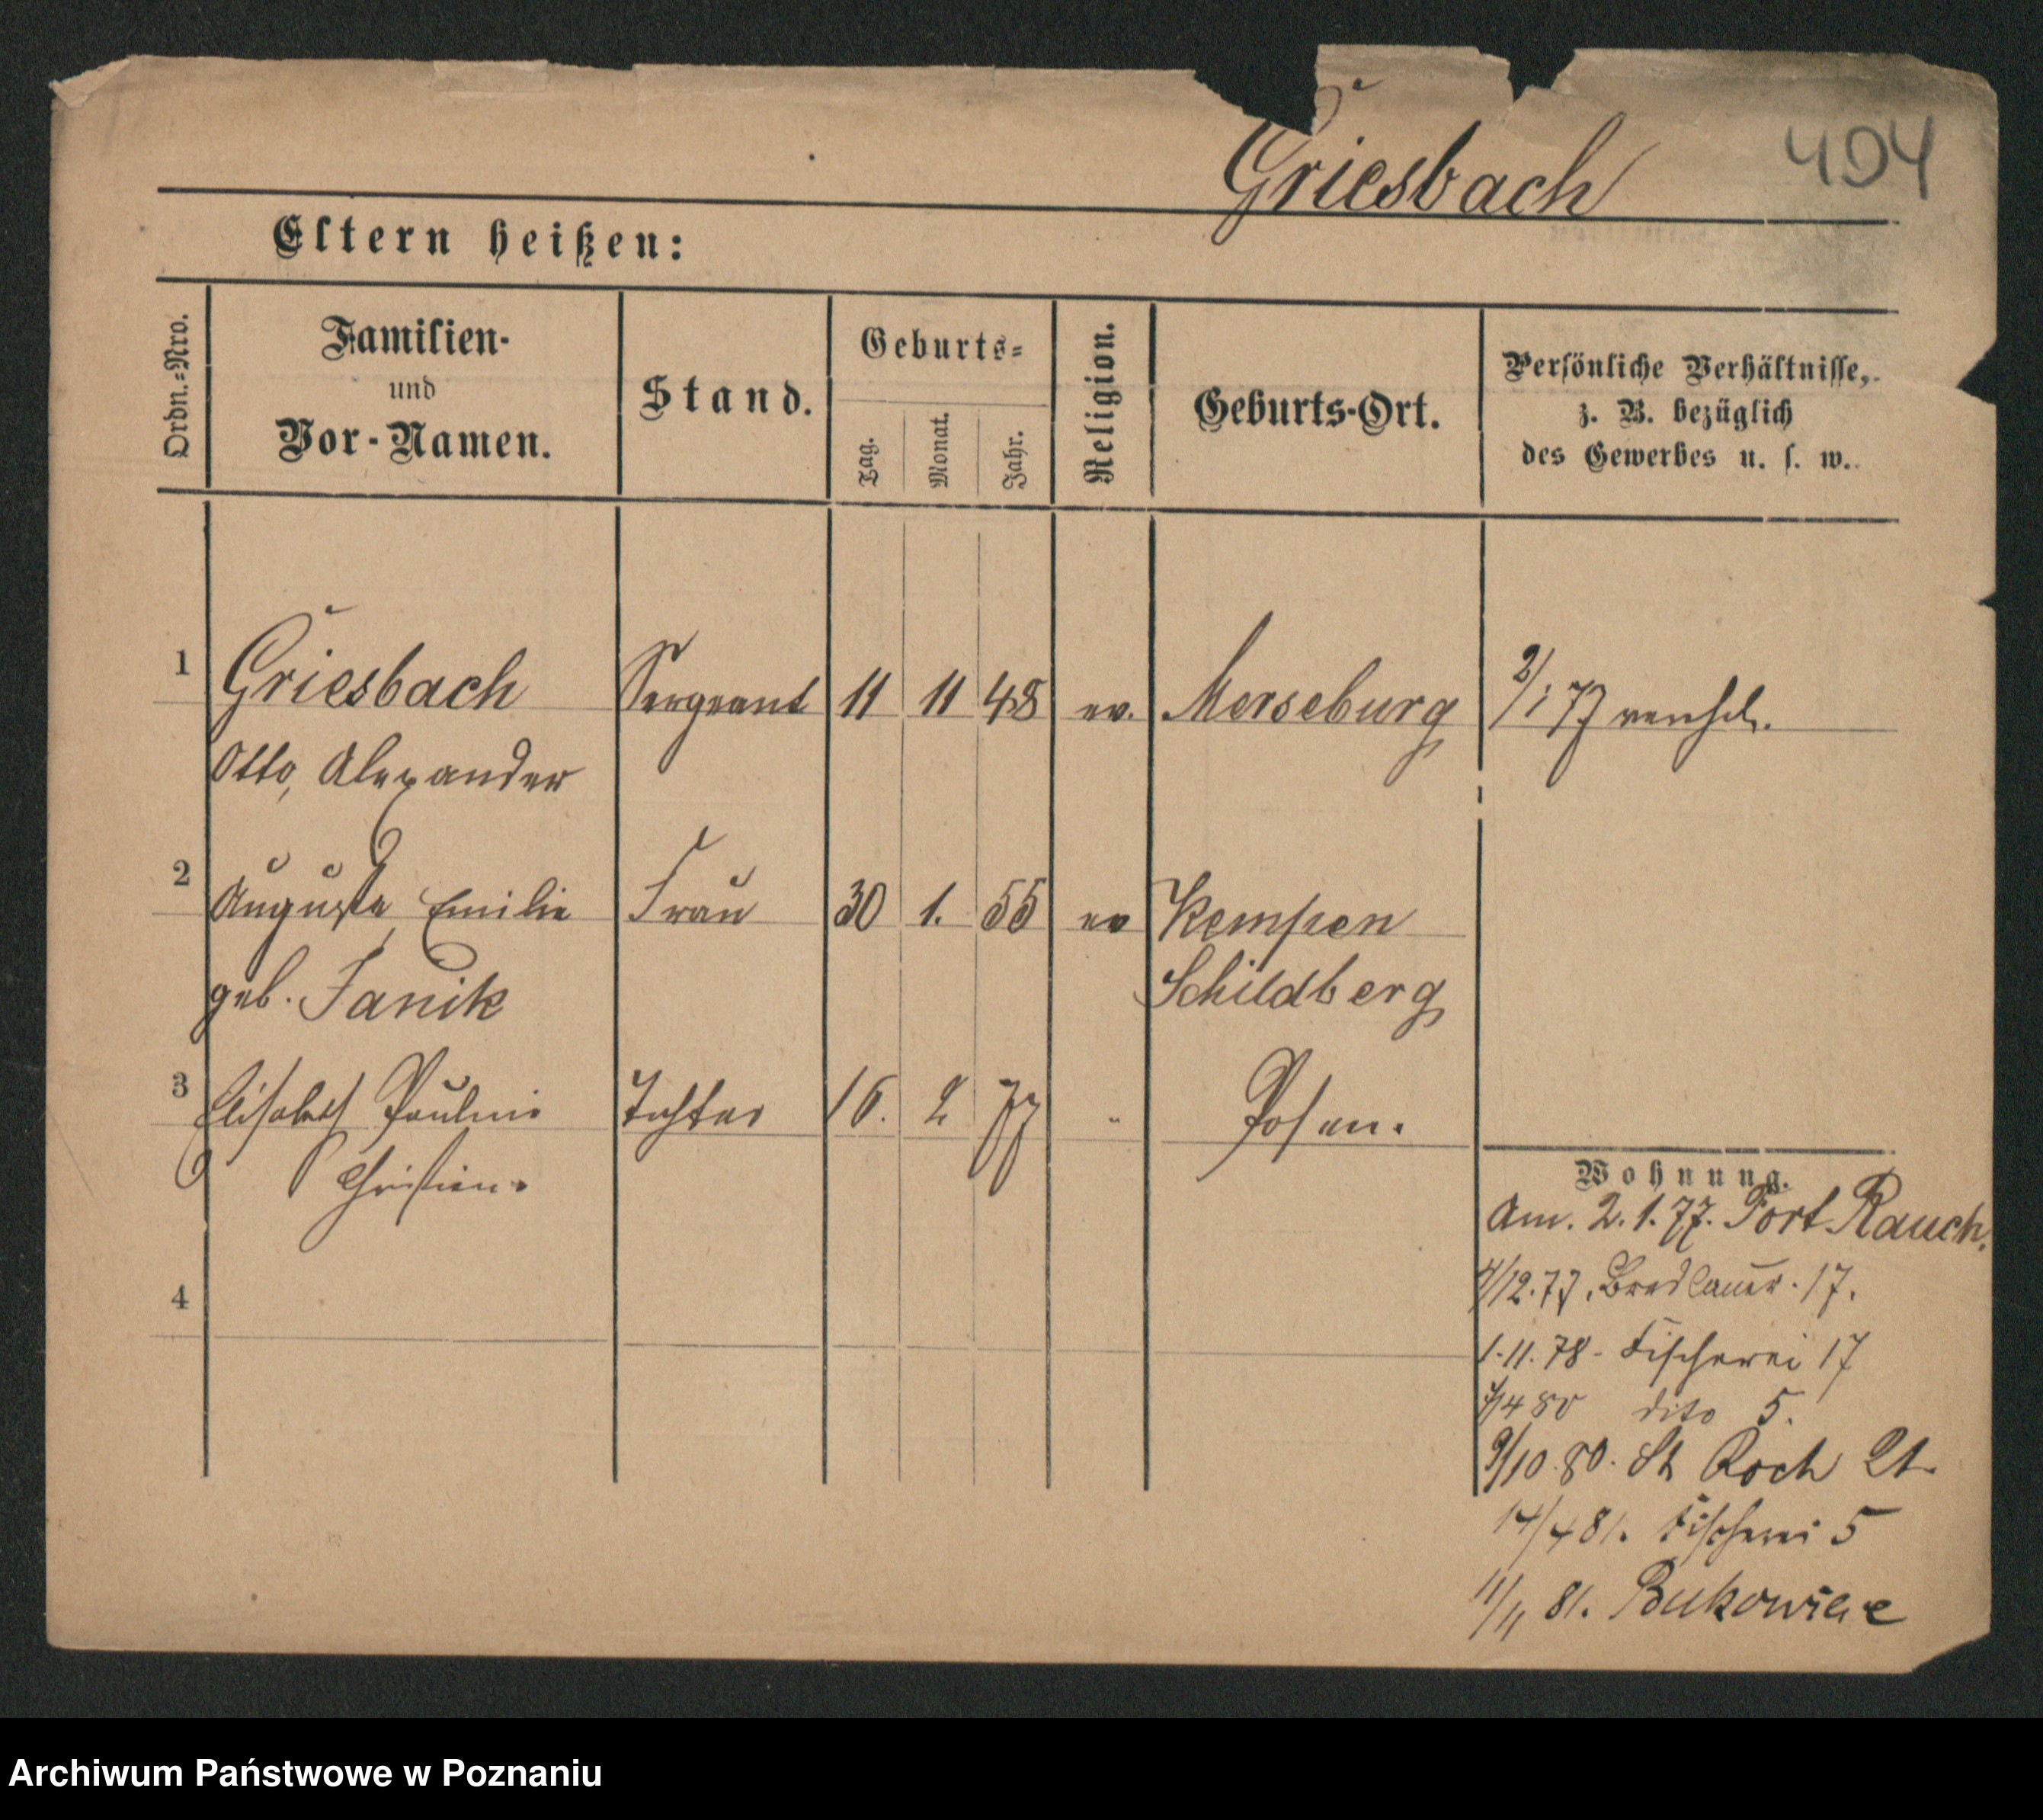 Griesbach
494
Eltern heißen:
Ordn.-Nro.
Familien-
und
Vor-Namen.
Stand.
Geburts-
Tag.
Monat.
Jahr.
Religion.
Geburts-Ort.
Persönliche Verhältnisse,
z. B. bezüglich
des Gewerbes u. s. w.
1 Griesbach Sergeant 11 11 48 ev. Merseburg 2/1 77 verehel.
Otto, Alexander
2 Auguste, Emilie Frau 30 1. 55 ev Kempen
geb. Janik Schildberg
3 Elisabeth Pauline Tochter 16. 2 77 " Posen.
Christiane
Wohnung.
Am. 2. 1. 77. Fort Rauch.
/12. 77. Breslauer. 17.
4
1. 11. 78 - Fischerei 17
/4 80 dito 5.
9/10. 80. St Roch 21.
14/4 81. Fischerei 5
11/11 81. Bukowiec
Archiwum Państwowe w Poznaniu